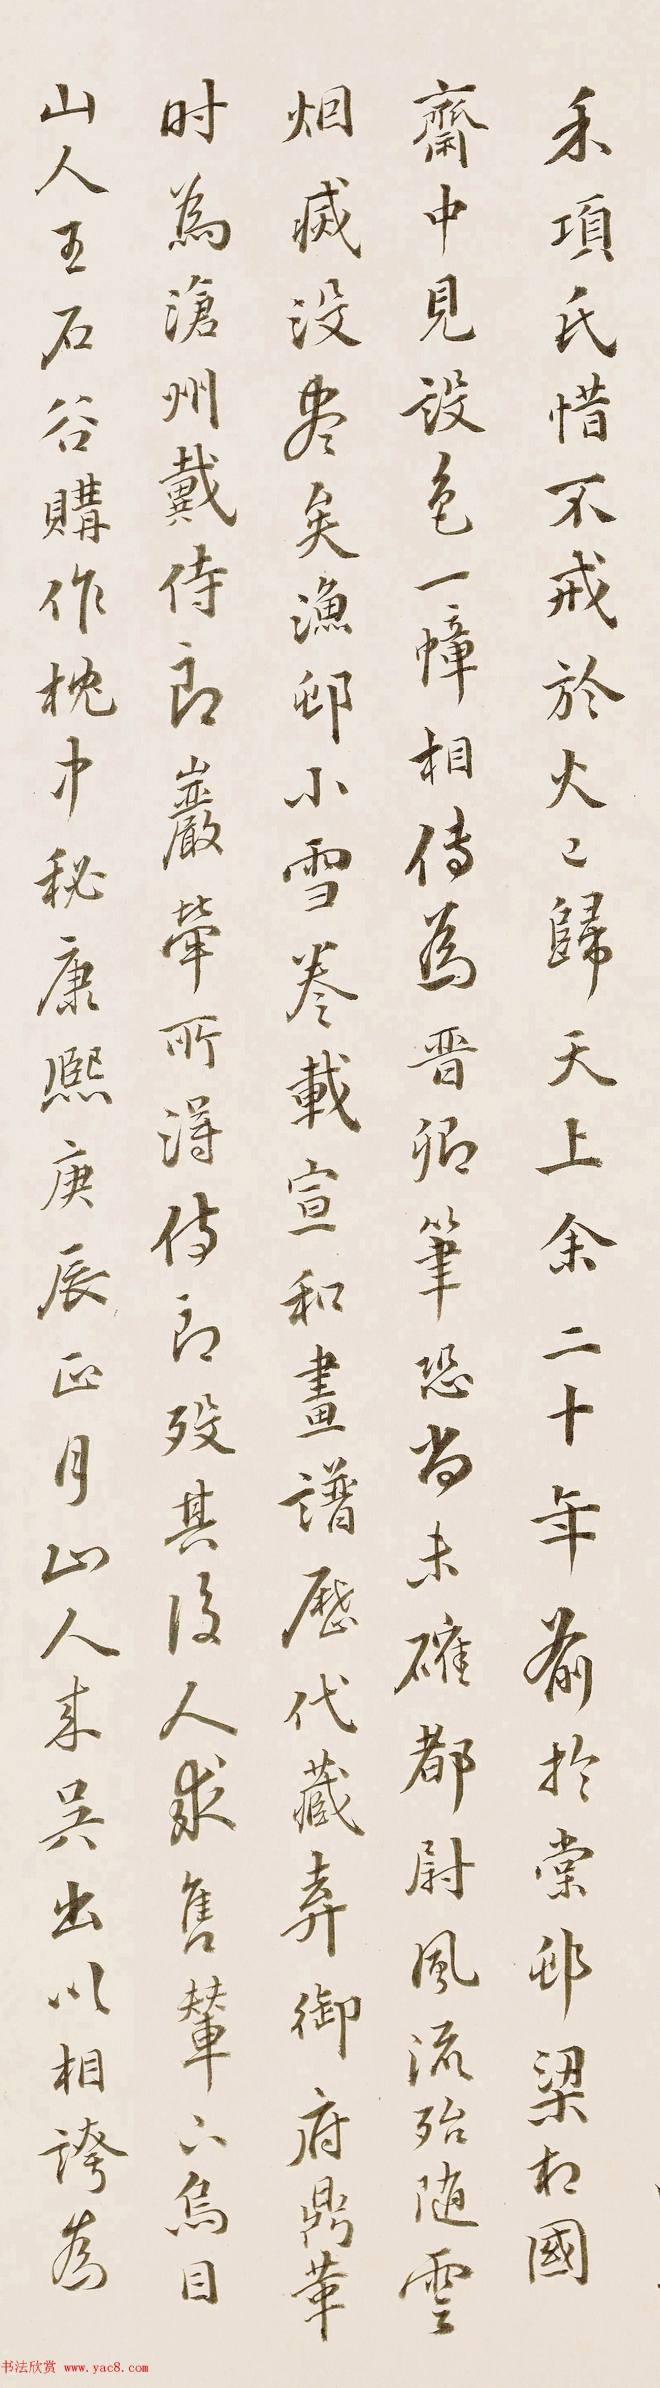 禾項氏惜不戒於火已歸天上余二十年前於棠邨梁相國
齋中見設色一幛相傳為晋卿筆恐尚未確都尉風流殆隨雲
烟滅没盡矣漁邨小雪卷載宣和畫譜歷代藏弆御府鼎革
时為滄州戴侍郎巖犖所得侍郎歿其後人求售輦下烏目
山人王石谷購作枕中秘康熙庚辰正月山人来吴出以相誇為
书法欣赏 www.yac8.com